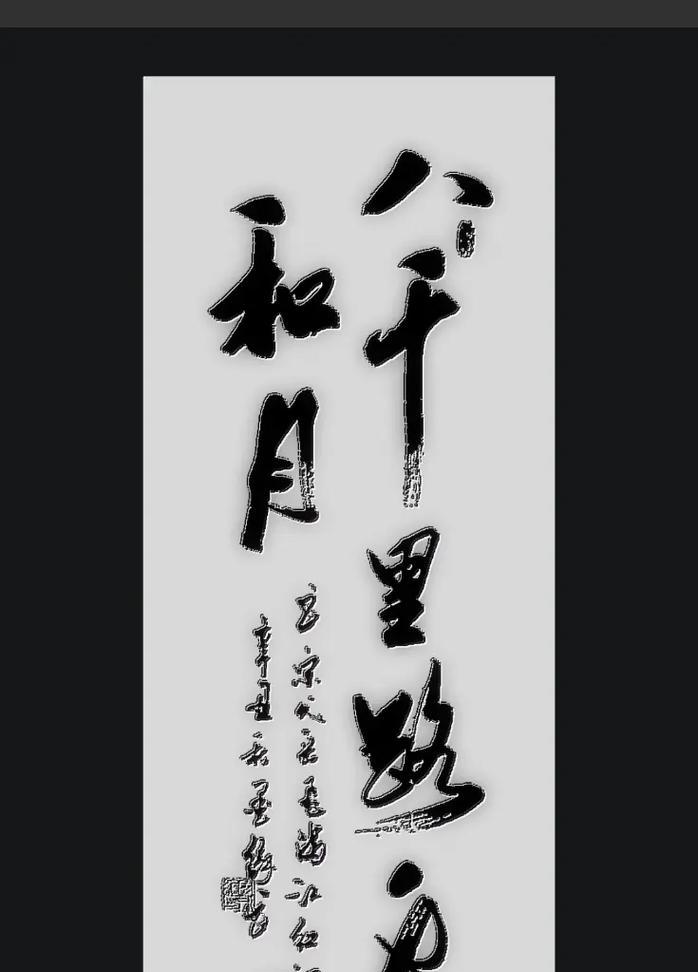 八千里路
和月
宋人岳飛满江红
辛丑秋